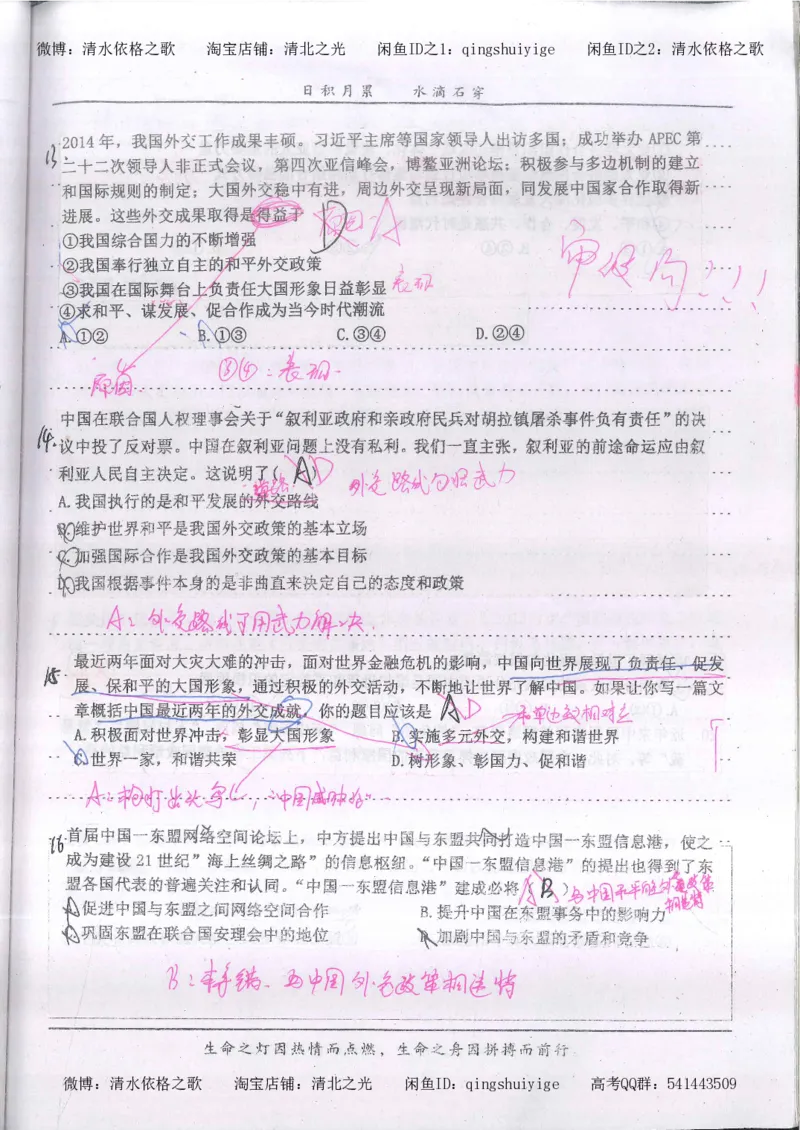 微博：清水依格之歌 淘宝店铺：清北之光 闲鱼ID之1：qingshuiyige 闲鱼ID之2：清水依格之歌
日积月累 水滴石穿
13
2014年，我国外交工作成果丰硕。习近平主席等国家领导人出访多国；成功举办 APEC 第
二十二次领导人非正式会议，第四次亚信峰会，博鳌亚洲论坛；积极参与多边机制的建立
和国际规则的制定；大国外交稳中有进，周边外交呈现新局面，同发展中国家合作取得新
进展。这些外交成果取得是得益于 D 原因 A
①我国综合国力的不断增强
②我国奉行独立自主的和平外交政策
③我国在国际舞台上负责任大国形象日益彰显 表现
④求和平、谋发展、促合作成为当今时代潮流
审设问!!!
A.①② B.①③ C.③④ D.②④
原因 ③④：表现.
14.
中国在联合国人权理事会关于“叙利亚政府和亲政府民兵对胡拉镇屠杀事件负有责任”的决
议中投了反对票。中国在叙利亚问题上没有私利。我们一直主张，叙利亚的前途命运应由叙
利亚人民自主决定。这说明了( A ) D
A.我国执行的是和平发展的外交路线
B.维护世界和平是我国外交政策的基本立场
C.加强国际合作是我国外交政策的基本目标
D.我国根据事件本身的是非曲直来决定自己的态度和政策
A：外交路线不用武力解决
15
最近两年面对大灾大难的冲击，面对世界金融危机的影响，中国向世界展现了负责任、促发
展、保和平的大国形象，通过积极的外交活动，不断地让世界了解中国。如果让你写一篇文
章概括中国最近两年的外交成就，你的题目应该是 A D
A.积极面对世界冲击，彰显大国形象 B.实施多元外交，构建和谐世界
C.世界一家，和谐共荣 D.树形象、彰国力、促和谐
16
首届中国—东盟网络空间论坛上，中方提出中国与东盟共同打造中国—东盟信息港，使之
成为建设 21 世纪”海上丝绸之路”的信息枢纽。“中国—东盟信息港”的提出也得到了东
盟各国代表的普遍关注和认同。“中国—东盟信息港”建成必将( B )
A.促进中国与东盟之间网络空间合作 B.提升中国在东盟事务中的影响力
C.巩固东盟在联合国安理会中的地位 D.加剧中国与东盟的矛盾和竞争
与中国外交政策相违悖
生命之灯因热情而点燃，生命之舟因拼搏而前行
微博：清水依格之歌 淘宝店铺：清北之光 闲鱼ID：qingshuiyige 高考QQ群：541443509